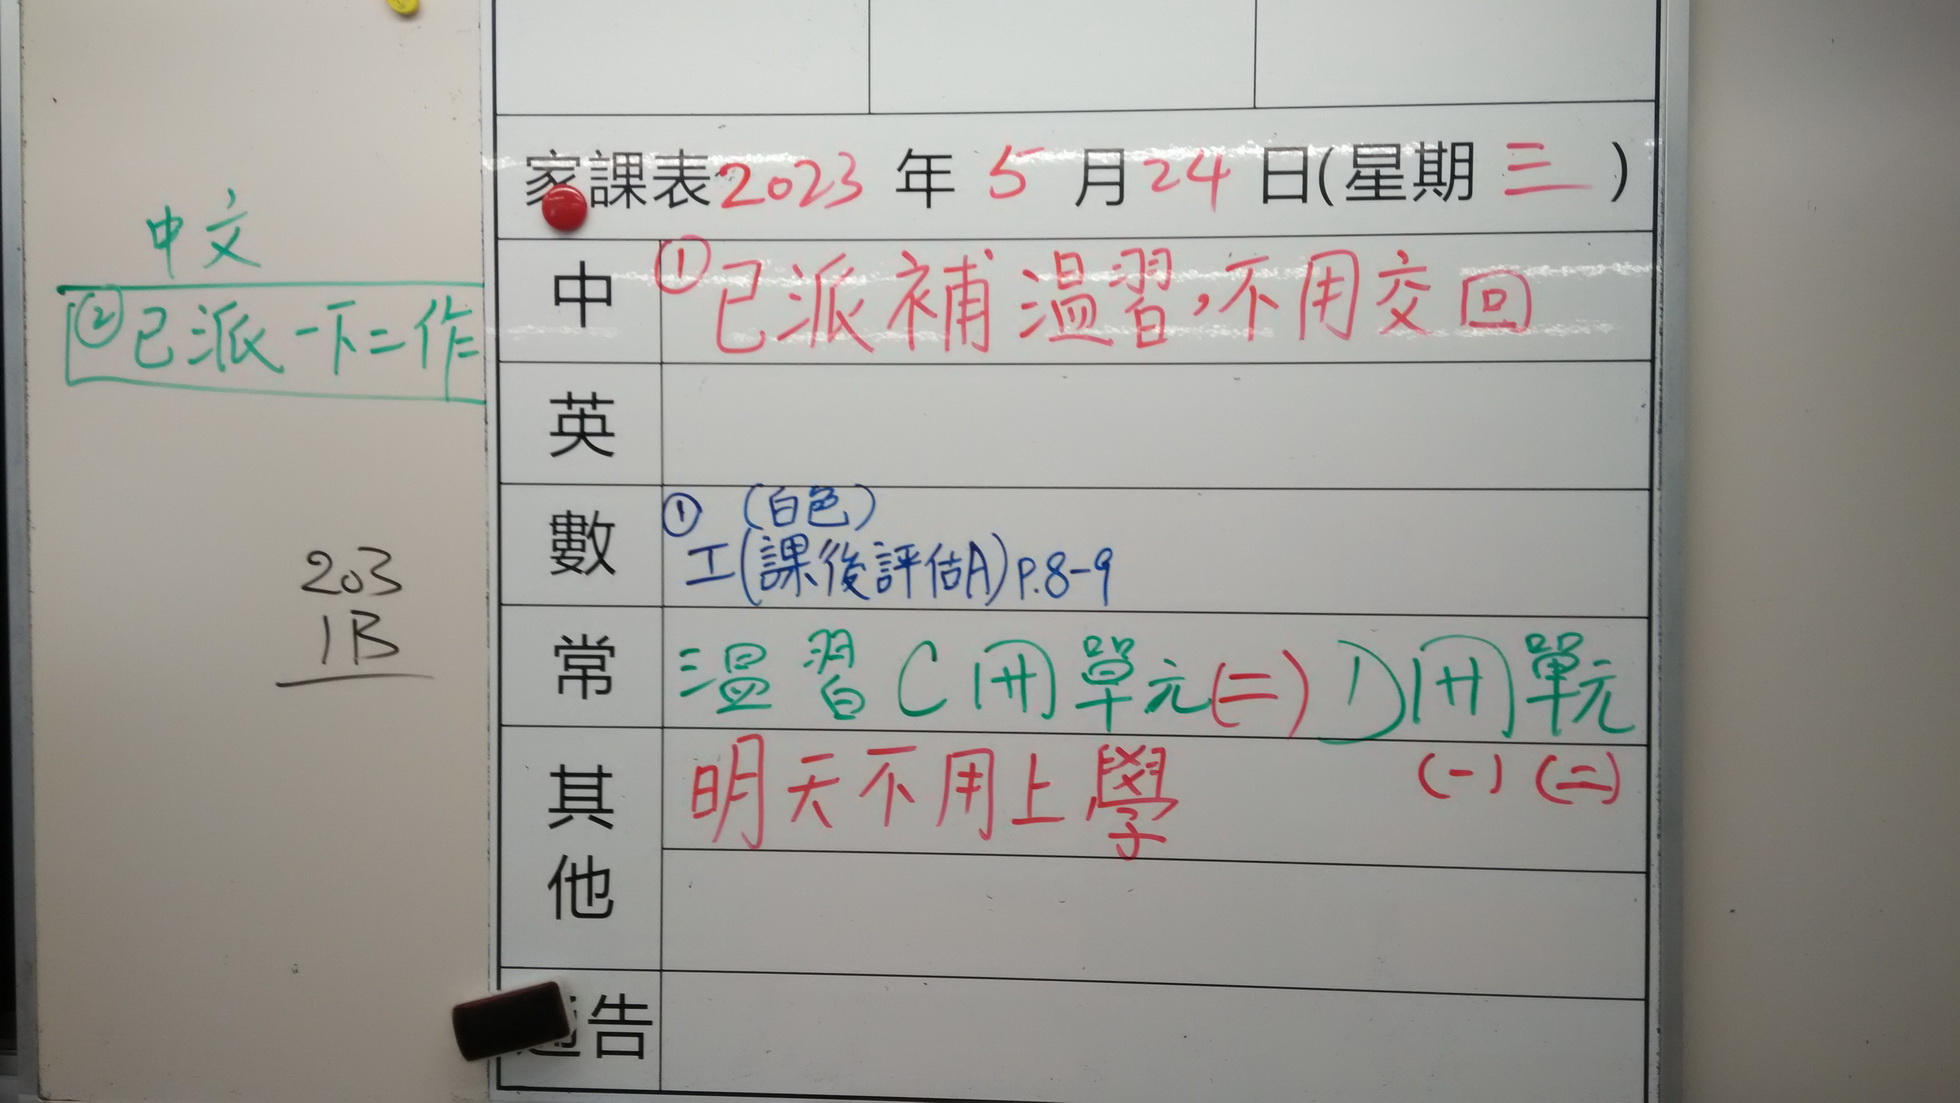 家課表2023年5月24日(星期三)
中文
②已派一下二作
中 ①已派補溫習,不用交回
英
數 ① (白色)
工(課後評估A)P.8-9
203
1B
常 溫習C冊單元(二) D冊單元
(一) (二)
其他 明天不用上學
通告